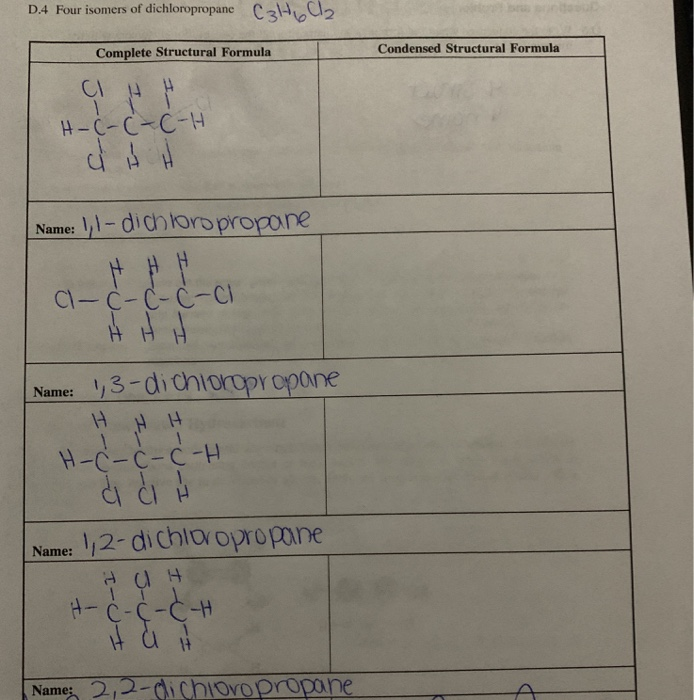 D.4 Four isomers of dichloropropane C3H6Cl2
Complete Structural Formula Condensed Structural Formula
Cl H H
H-C-C-C-H
Cl H H
Name: 1,1-dichloropropane
H H H
Cl-C-C-C-Cl
H H H
Name: 1,3-dichloropropane
H H H
H-C-C-C-H
Cl Cl H
Name: 1,2-dichloropropane
H Cl H
H-C-C-C-H
H Cl H
Name: 2,2-dichloropropane